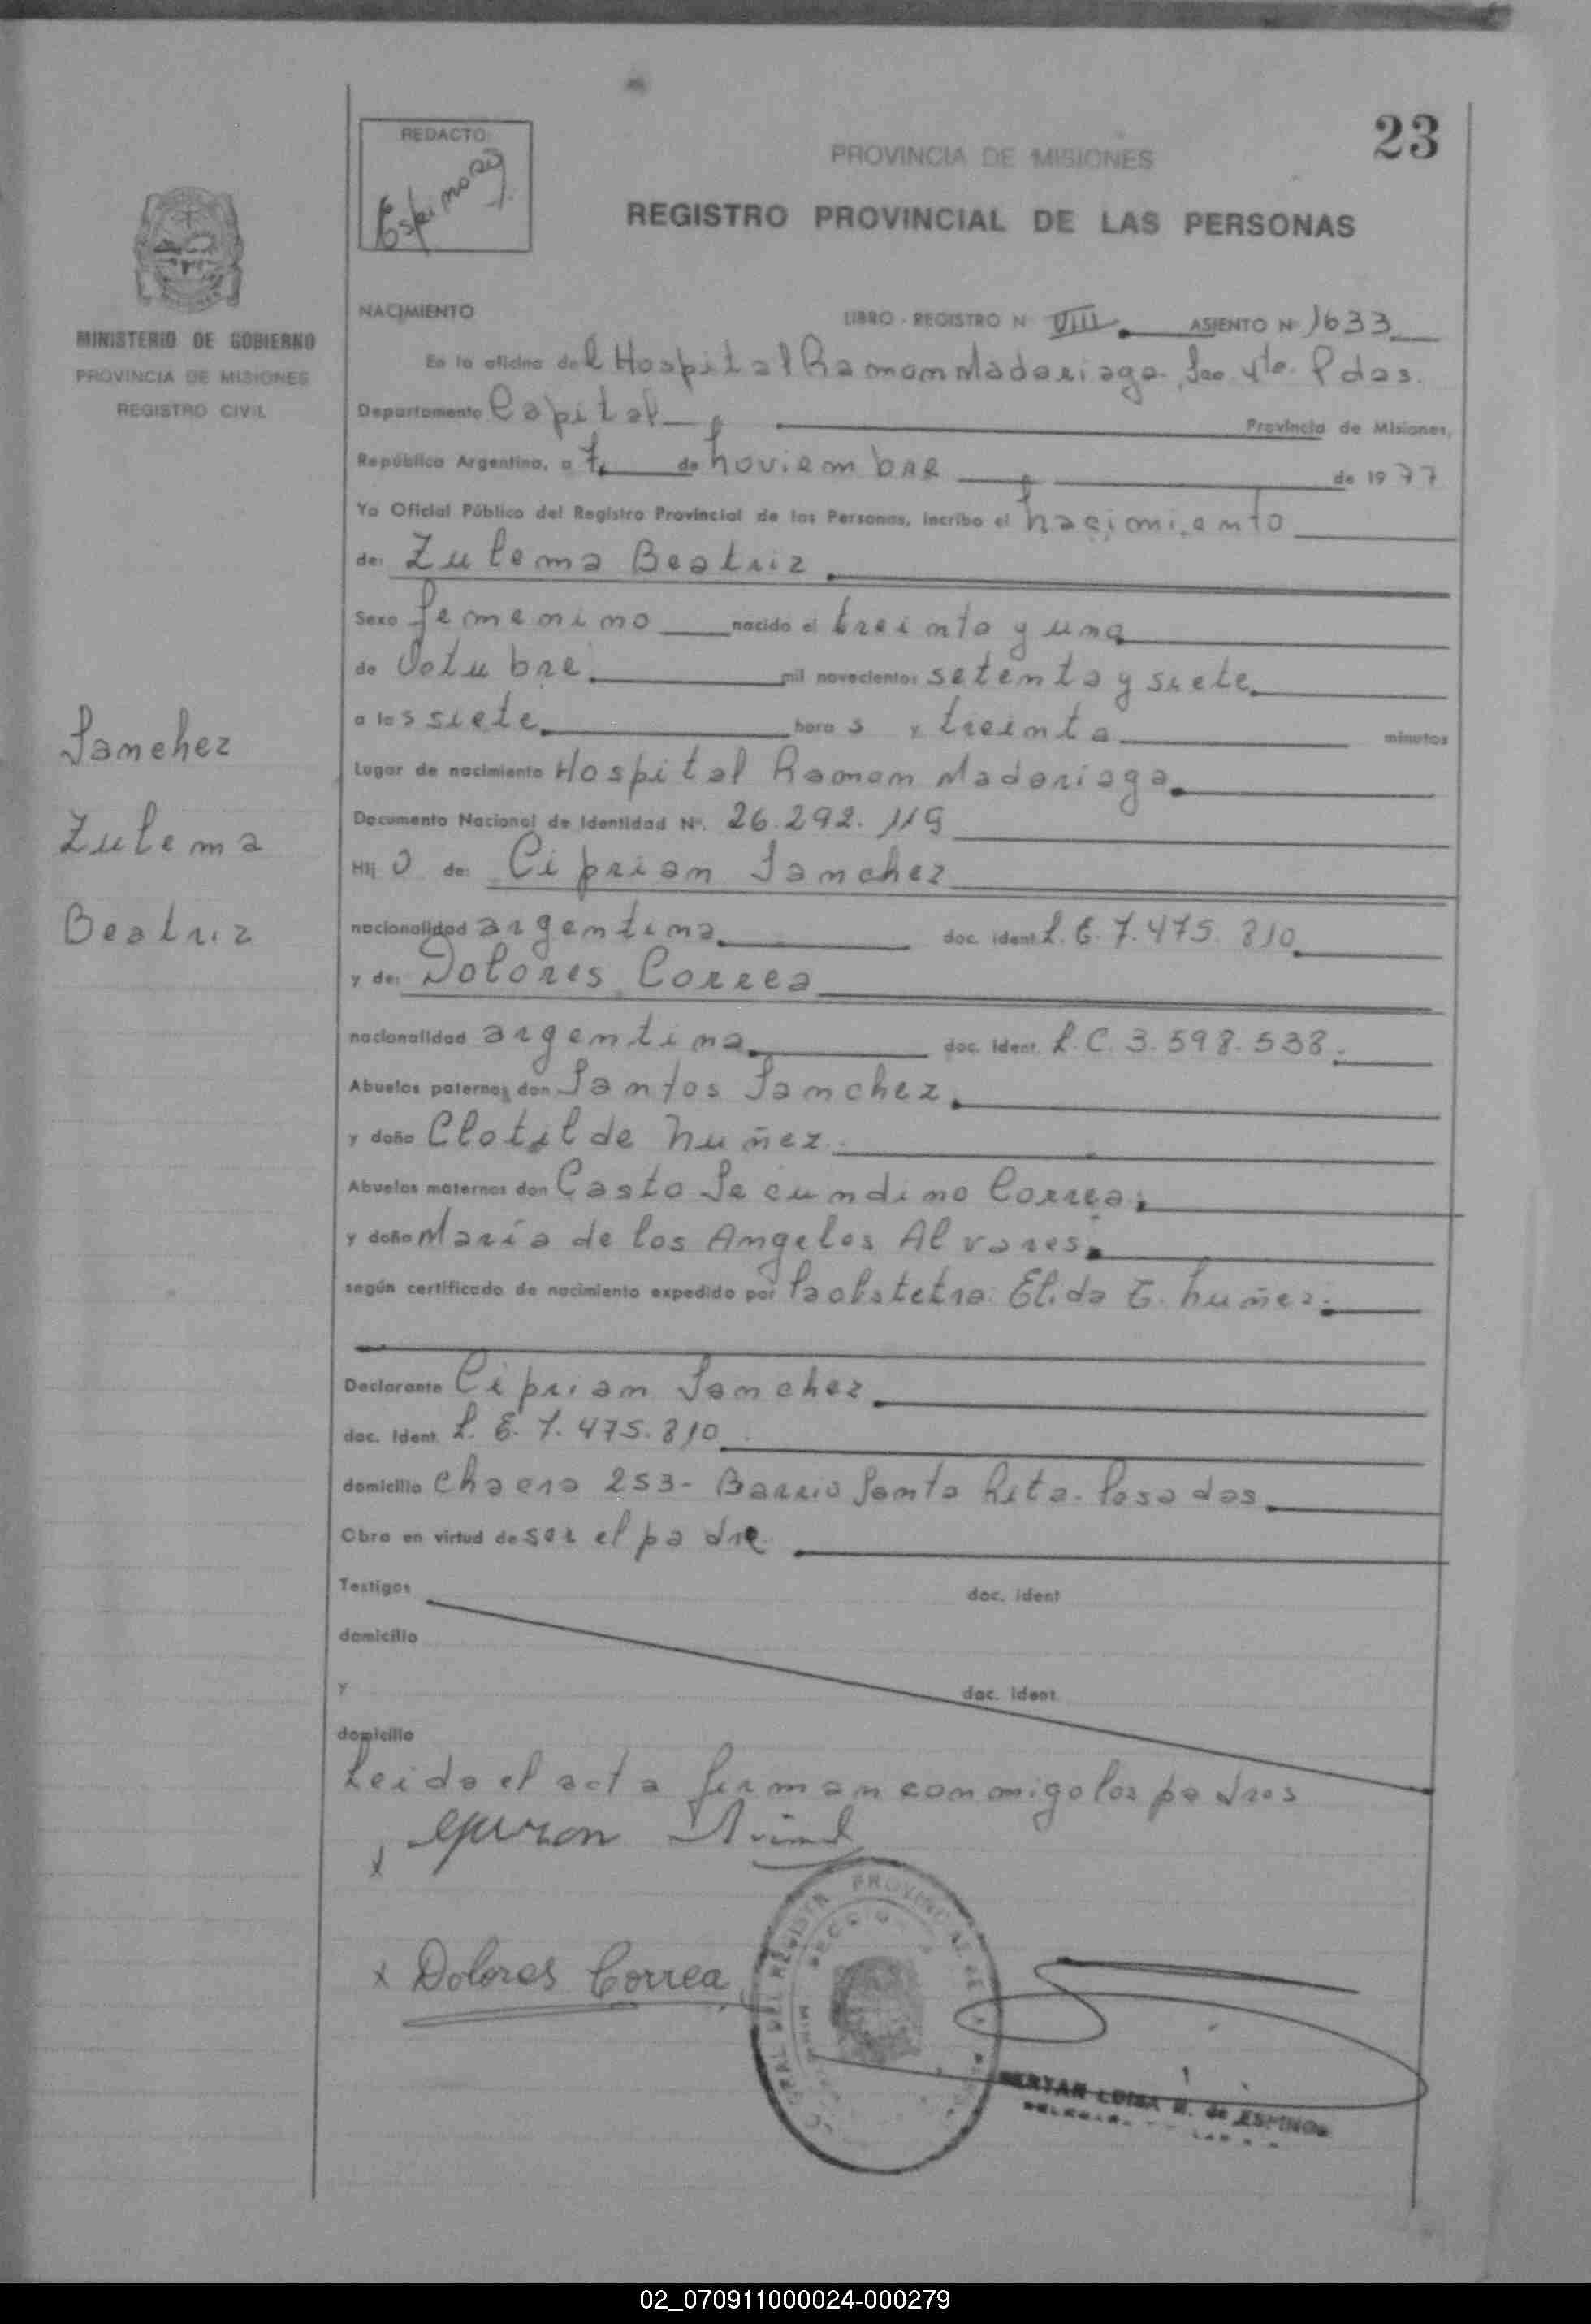 23
REDACTO:
Espinosa
PROVINCIA DE MISIONES
REGISTRO PROVINCIAL DE LAS PERSONAS
MINISTERIO DE GOBIERNO
PROVINCIA DE MISIONES
REGISTRO CIVIL
NACIMIENTO LIBRO - REGISTRO N VIII. ASIENTO Nº 1633
En la oficina del Hospital Ramon Madariaga. Sec 4ta. Pdas.
Departamento Capital Provincia de Misiones,
República Argentina, a 7, de noviembre de 1977
Yo Oficial Público del Registro Provincial de las Personas, incribo el nacimiento
de: Zulema Beatriz
Sexo femenino nacido el treinta y uno
de Octubre. mil novecientos setenta y siete
a las siete. hora s y treinta minutos
Lugar de nacimiento Hospital Ramon Madariaga.
Documento Nacional de Identidad Nº. 26.292.119
Hij o de: Ciprian Sanchez
nacionalidad argentina. doc. ident. L.E. 7.475.810
y de: Dolores Correa
nacionalidad argentina. doc. ident. L.C. 3.598.538.
Abuelos paternos don Santos Sanchez.
y doña Clotilde nuñez.
Abuelos maternos don Casto Secundino Correa.
y doña Maria de los Angeles Alvares.
según certificado de nacimiento expedido por la obstetra: Elida E. nuñez.
Declarante Ciprian Sanchez.
doc. Ident. L.E. 7.475.810
domicilio chacra 253- Barrio Santa Rita- Posadas.
Obra en virtud de ser el padre
Testigos doc. ident
domicilio
y doc. ident.
domicilio
Sanchez
Zulema
Beatriz
Leida el acta firman conmigo los padres
x
x Dolores Correa
PROVINCIAL DE
SECCION
LUISA M. de ESPINOSA
02_070911000024-000279